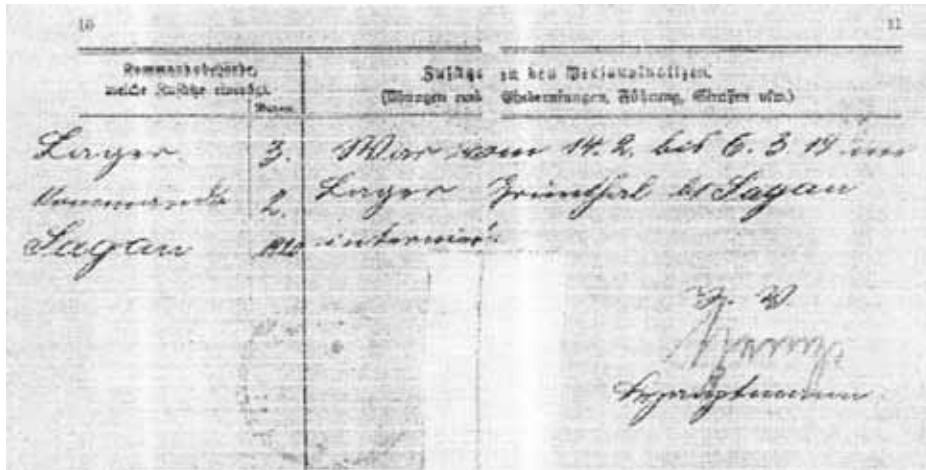 10
11
Kommandobehörde,
welche Zusätze einträgt.
Datum.
Zusätze zu den Personalnotizen.
(Übungen und Einberufungen, Führung, Strafen usw.)
Lager 3. War vom 14. 2. bis 6. 3. 19 im
2. Lager Grünthal b/ Sagan
Sagan 1920 interniert.
I. V.
Hauptmann